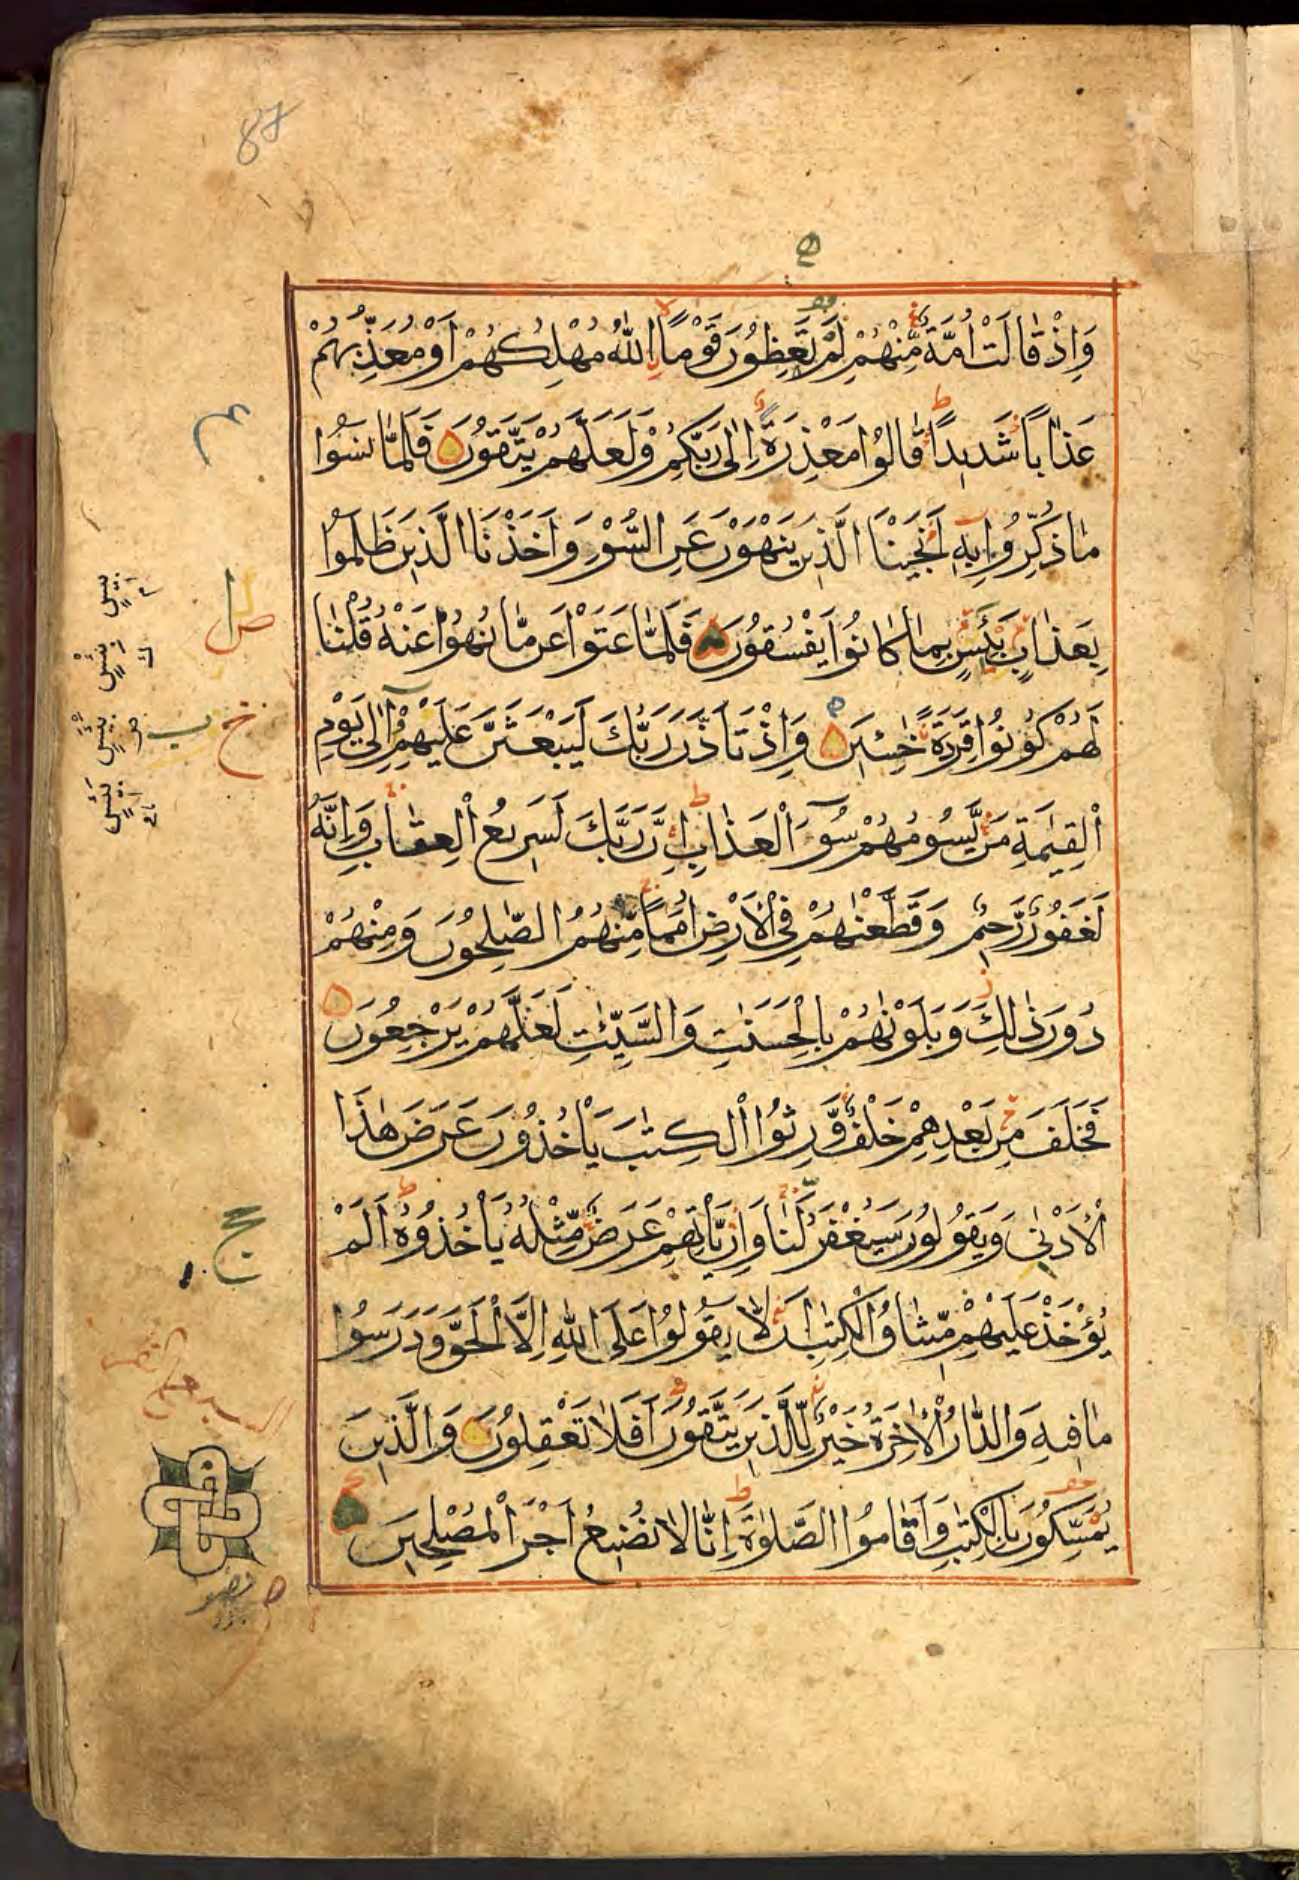 87
وَاِذْ قَالَتْ اُمَّةٌ مِّنْهُمْ لِمَ تَعِظُوْنَ قَوْمًا اِۨللّٰهُ مُهْلِكُهُمْ اَوْ مُعَذِّبُهُمْ
عَذَابًا شَدِيْدًا قَالُوْا مَعْذِرَةً اِلٰى رَبِّكُمْ وَلَعَلَّهُمْ يَتَّقُوْنَ فَلَمَّا نَسُوْا
مَا ذُكِّرُوْا بِهٖ اَنْجَيْنَا الَّذِيْنَ يَنْهَوْنَ عَنِ السُّوْءِ وَاَخَذْنَا الَّذِيْنَ ظَلَمُوْا
بِعَذَابٍ بَئِيْسٍ بِمَا كَانُوْا يَفْسُقُوْنَ فَلَمَّا عَتَوْا عَنْ مَّا نُهُوْا عَنْهُ قُلْنَا
لَهُمْ كُوْنُوْا قِرَدَةً خٰسِئِيْنَ وَاِذْ تَاَذَّنَ رَبُّكَ لَيَبْعَثَنَّ عَلَيْهِمْ اِلٰى يَوْمِ
الْقِيٰمَةِ مَنْ يَّسُوْمُهُمْ سُوْٓءَ الْعَذَابِ اِنَّ رَبَّكَ لَسَرِيْعُ الْعِقَابِ وَاِنَّهٗ
لَغَفُوْرٌ رَّحِيْمٌ وَقَطَّعْنٰهُمْ فِى الْاَرْضِ اُمَمًا مِّنْهُمُ الصّٰلِحُوْنَ وَمِنْهُمْ
دُوْنَ ذٰلِكَ وَبَلَوْنٰهُمْ بِالْحَسَنٰتِ وَالسَّيِّئٰتِ لَعَلَّهُمْ يَرْجِعُوْنَ
فَخَلَفَ مِنْ بَعْدِهِمْ خَلْفٌ وَّرِثُوا الْكِتٰبَ يَاْخُذُوْنَ عَرَضَ هٰذَا
الْاَدْنٰى وَيَقُوْلُوْنَ سَيُغْفَرُ لَنَا وَاِنْ يَّاْتِهِمْ عَرَضٌ مِّثْلُهٗ يَاْخُذُوْهُ اَلَمْ
يُؤْخَذْ عَلَيْهِمْ مِّيْثَاقُ الْكِتٰبِ اَنْ لَّا يَقُوْلُوْا عَلَى اللّٰهِ اِلَّا الْحَقَّ وَدَرَسُوْا
مَا فِيْهِ وَالدَّارُ الْاٰخِرَةُ خَيْرٌ لِّلَّذِيْنَ يَتَّقُوْنَ اَفَلَا تَعْقِلُوْنَ وَالَّذِيْنَ
يُمَسِّكُوْنَ بِالْكِتٰبِ وَاَقَامُوا الصَّلٰوةَ اِنَّا لَا نُضِيْعُ اَجْرَ الْمُصْلِحِيْنَ